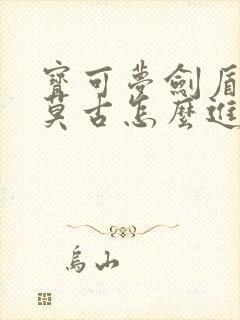 寶可夢劍盾
莫古怎麼進
烏山